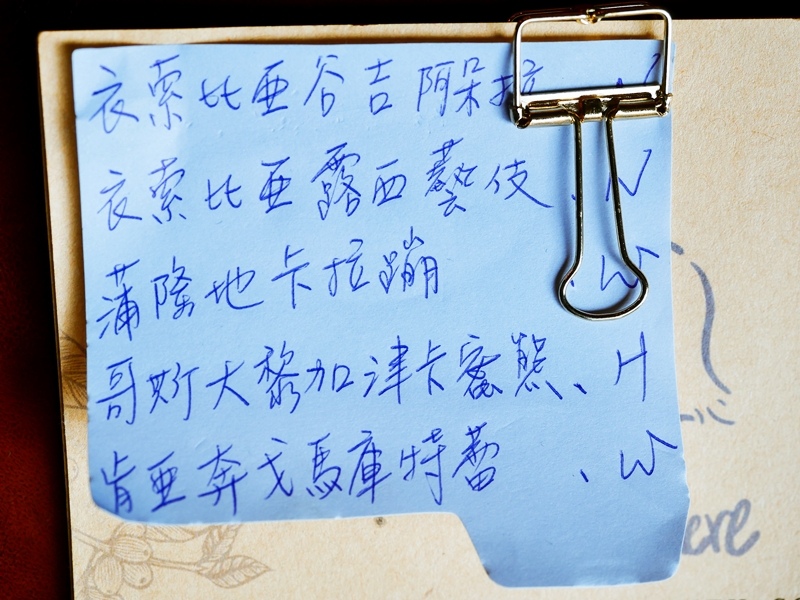 衣索比亞谷吉阿朵拉
衣索比亞露西藝伎、N
蒲隆地卡拉蹦、W
哥斯大黎加津卡蜜熊、H
肯亞奔戈馬庫特蕾、W